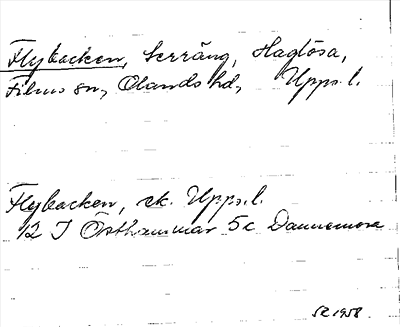 Flybacken, terräng, Hagtösa,
Films sn, Olands hd, Upps.l.
Flybacken, ek. Upps.l.
12 I Östhammar 5c Dannemora
SR 1958.